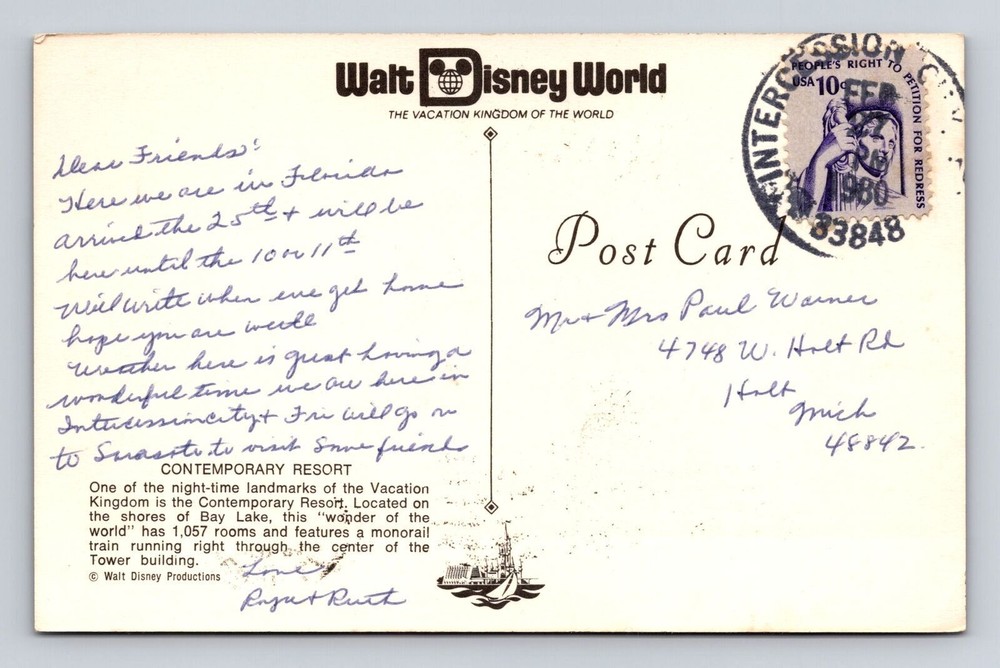 Walt Disney World
THE VACATION KINGDOM OF THE WORLD
Dear Friends:
Here we are in Florida
arrived the 25th + will be
here until the 10 or 11th
Will write when we get home
hope you are well
Weather here is great having a
wonderful time we are here in
Intercession city + Fri will go on
to Sarasota to visit some friends
Love
Roger + Ruth
CONTEMPORARY RESORT
One of the night-time landmarks of the Vacation
Kingdom is the Contemporary Resort. Located on
the shores of Bay Lake, this "wonder of the
world" has 1,057 rooms and features a monorail
train running right through the center of the
Tower building.
© Walt Disney Productions
Post Card
Mr + Mrs Paul Warner
4748 W. Holt Rd
Holt
Mich
48842.
PEOPLE'S RIGHT TO PETITION FOR REDRESS
USA 10c
INTERCESSION CITY
FEB
27
PM
1980
33848